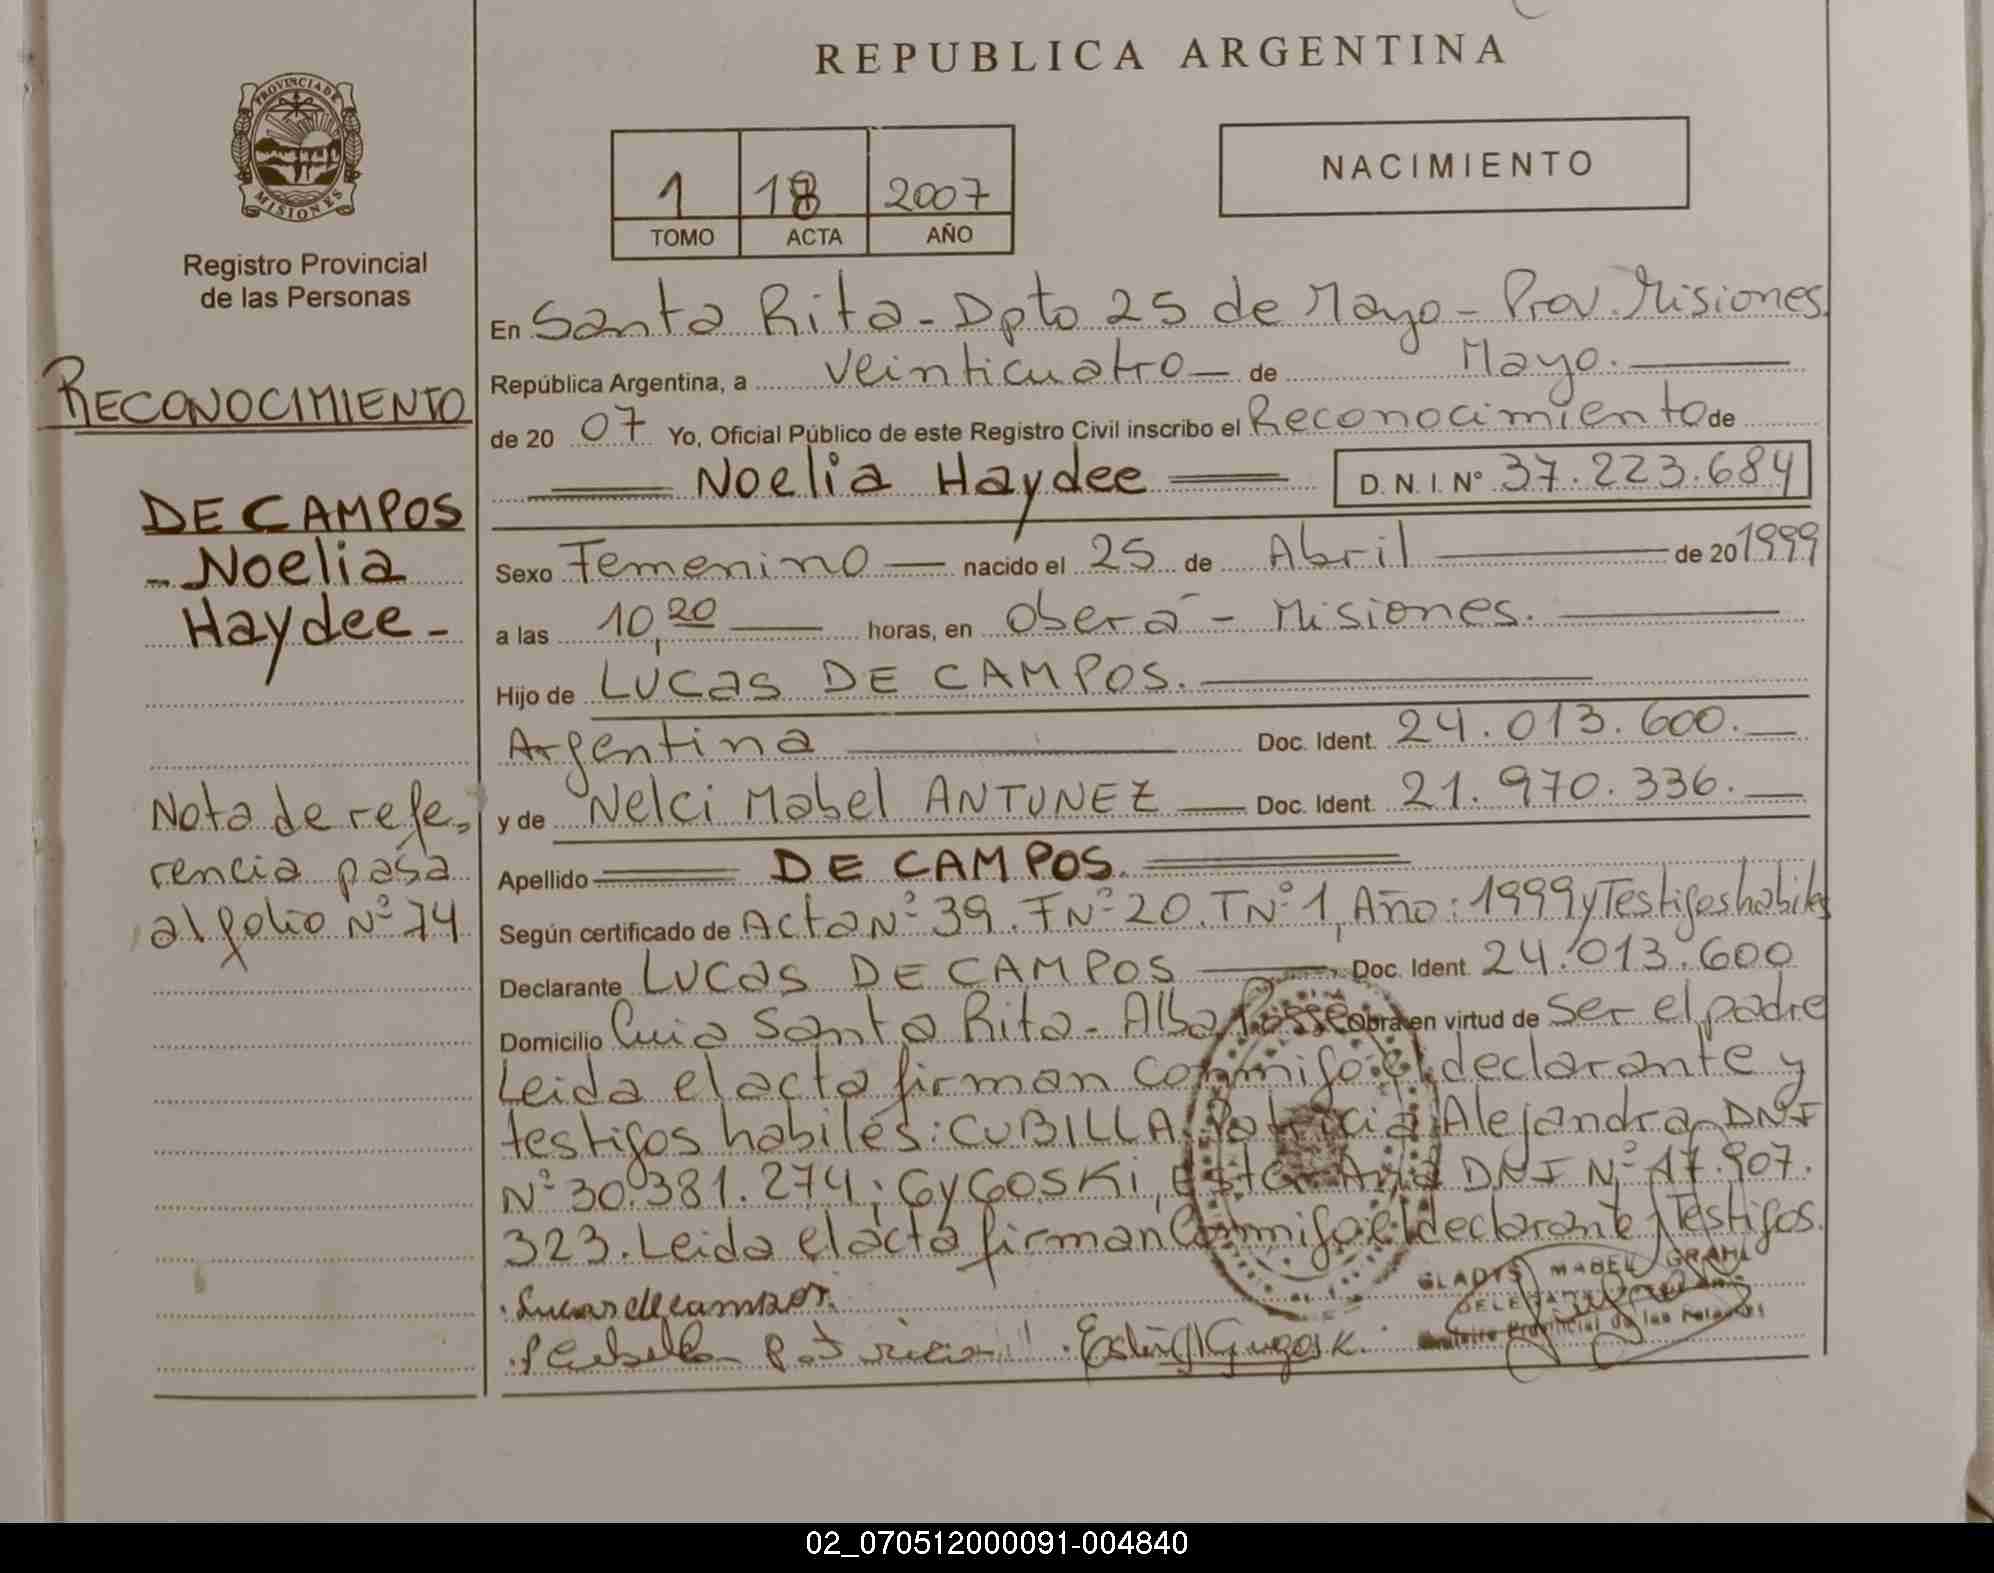 REPUBLICA ARGENTINA
PROVINCIA DE
MISIONES
Registro Provincial
de las Personas
1 18 2007
TOMO ACTA AÑO
NACIMIENTO
RECONOCIMIENTO
DE CAMPOS
- Noelia
Haydee -
Nota de refe,
rencia pasa
al folio Nº 74
En Santa Rita - Dpto 25 de Mayo - Prov. Misiones
República Argentina, a veinticuatro de Mayo.
de 20 07 Yo, Oficial Público de este Registro Civil inscribo el Reconocimiento de
Noelia Haydee D. N. I. Nº 37.223.684
Sexo Femenino nacido el 25 de Abril de 20 1999
a las 10,20 horas, en Oberá - Misiones.
Hijo de Lucas DE CAMPOS.
Argentina Doc. Ident. 24.013.600.
y de Nelci Mabel ANTUNEZ Doc. Ident. 21.970.336.
Apellido DE CAMPOS.
Según certificado de Acta Nº 39. F Nº 20. T Nº 1, Año: 1999 y Testigos habiles
Declarante Lucas DE CAMPOS Doc. Ident. 24.013.600
Domicilio Cuia Santa Rita - Alba Posse Obra en virtud de ser el padre
Leida el acta firman conmigo el declarante y
testigos habiles: CUBILLA Patricia Alejandra DNI
Nº 30.381.274; GYGOSKi, Ester Ana DNI Nº 17.907.
323. Leida el acta firman Conmigo el declarante y Testigos.
Lucas de campos.
Patricia
GLADYS MABEL GRAHL
DELEGADA
Registro Provincial de las Personas
02_070512000091-004840